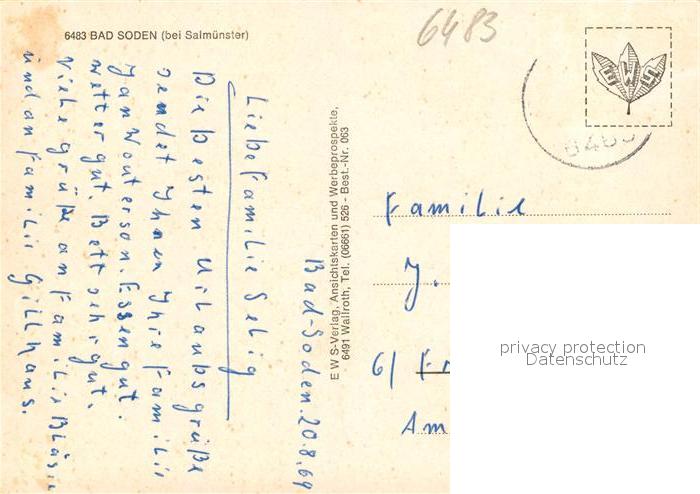 6483 BAD SODEN (bei Salmünster)
6483
Bad-Soden. 20.8.69
Liebe Familie Selig
Die besten Urlaubsgrüße
sendet Ihnen Ihre Familie
Essen gut.
Wetter gut. Bett sehr gut.
Viele grüße an Familie Bläsin
und an Familie Gillhaus.
E W S-Verlag, Ansichtskarten und Werbeprospekte,
6491 Wallroth, Tel. (06661) 526 - Best.-Nr. 063
EWS
Familie
J.
6/ Fr
Am
privacy protection
Datenschutz